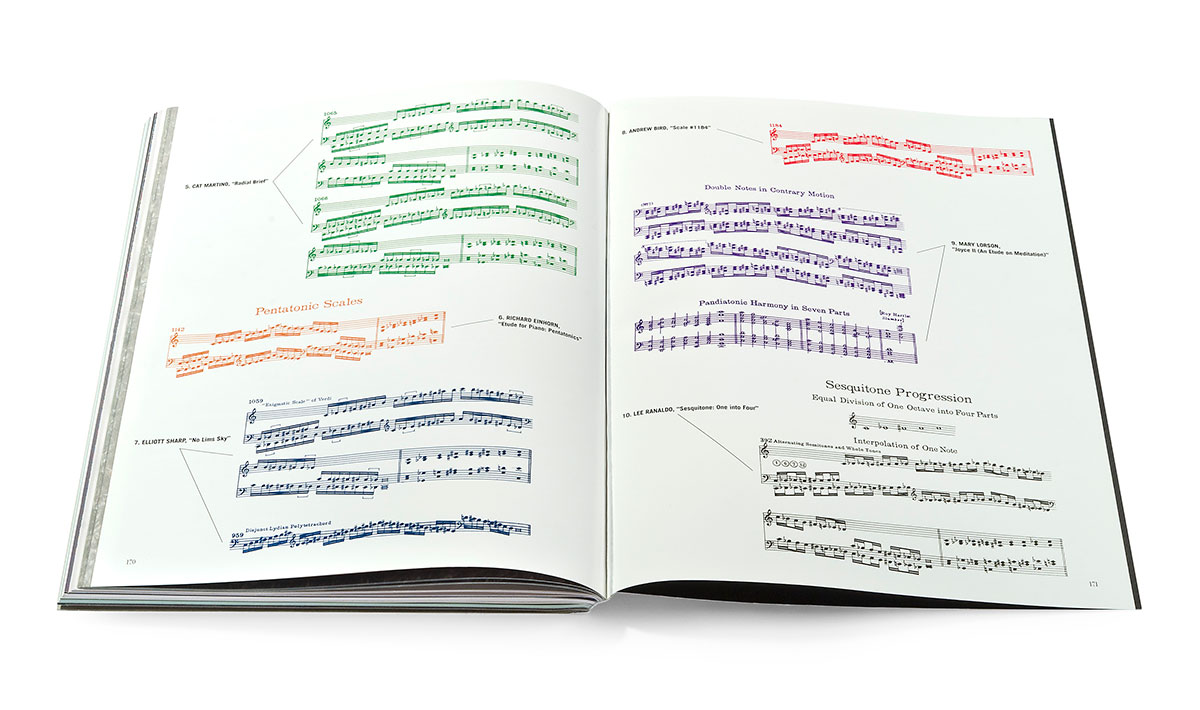 1065
5. CAT MARTINO, "Radial Brief"
1066
Pentatonic Scales
1162
6. RICHARD EINHORN,
"Etude for Piano: Pentatonics"
1059
"Enigmatic Scale" of Verdi
7. ELLIOTT SHARP, "No Lims Sky"
Disjunct Lydian Polytetrachord
959
170
8. ANDREW BIRD, "Scale #1184"
1184
Double Notes in Contrary Motion
9. MARY LORSON,
"Joyce II (An Etude on Meditation)"
Pandiatonic Harmony in Seven Parts
[Roy Harris
Sesquitone Progression
Equal Division of One Octave into Four Parts
10. LEE RANALDO, "Sesquitone: One into Four"
Interpolation of One Note
392 Alternating Semitones and Whole Tones
171